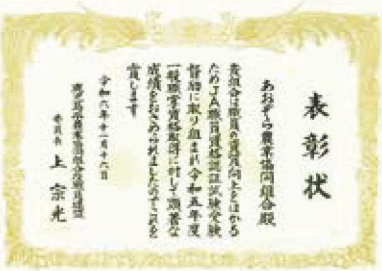 表彰状
あおぞら農業協同組合殿
貴組合は職員の資質向上をはかる
ためJA職員資格認証試験受験
督励に取り組まれ令和五年度
一般職業資格取得に対して顕著な
成績をおさめられましたのでこれを
賞します
令和六年十一月十六日
鹿児島県農業協同組合
委員長 上 宗光